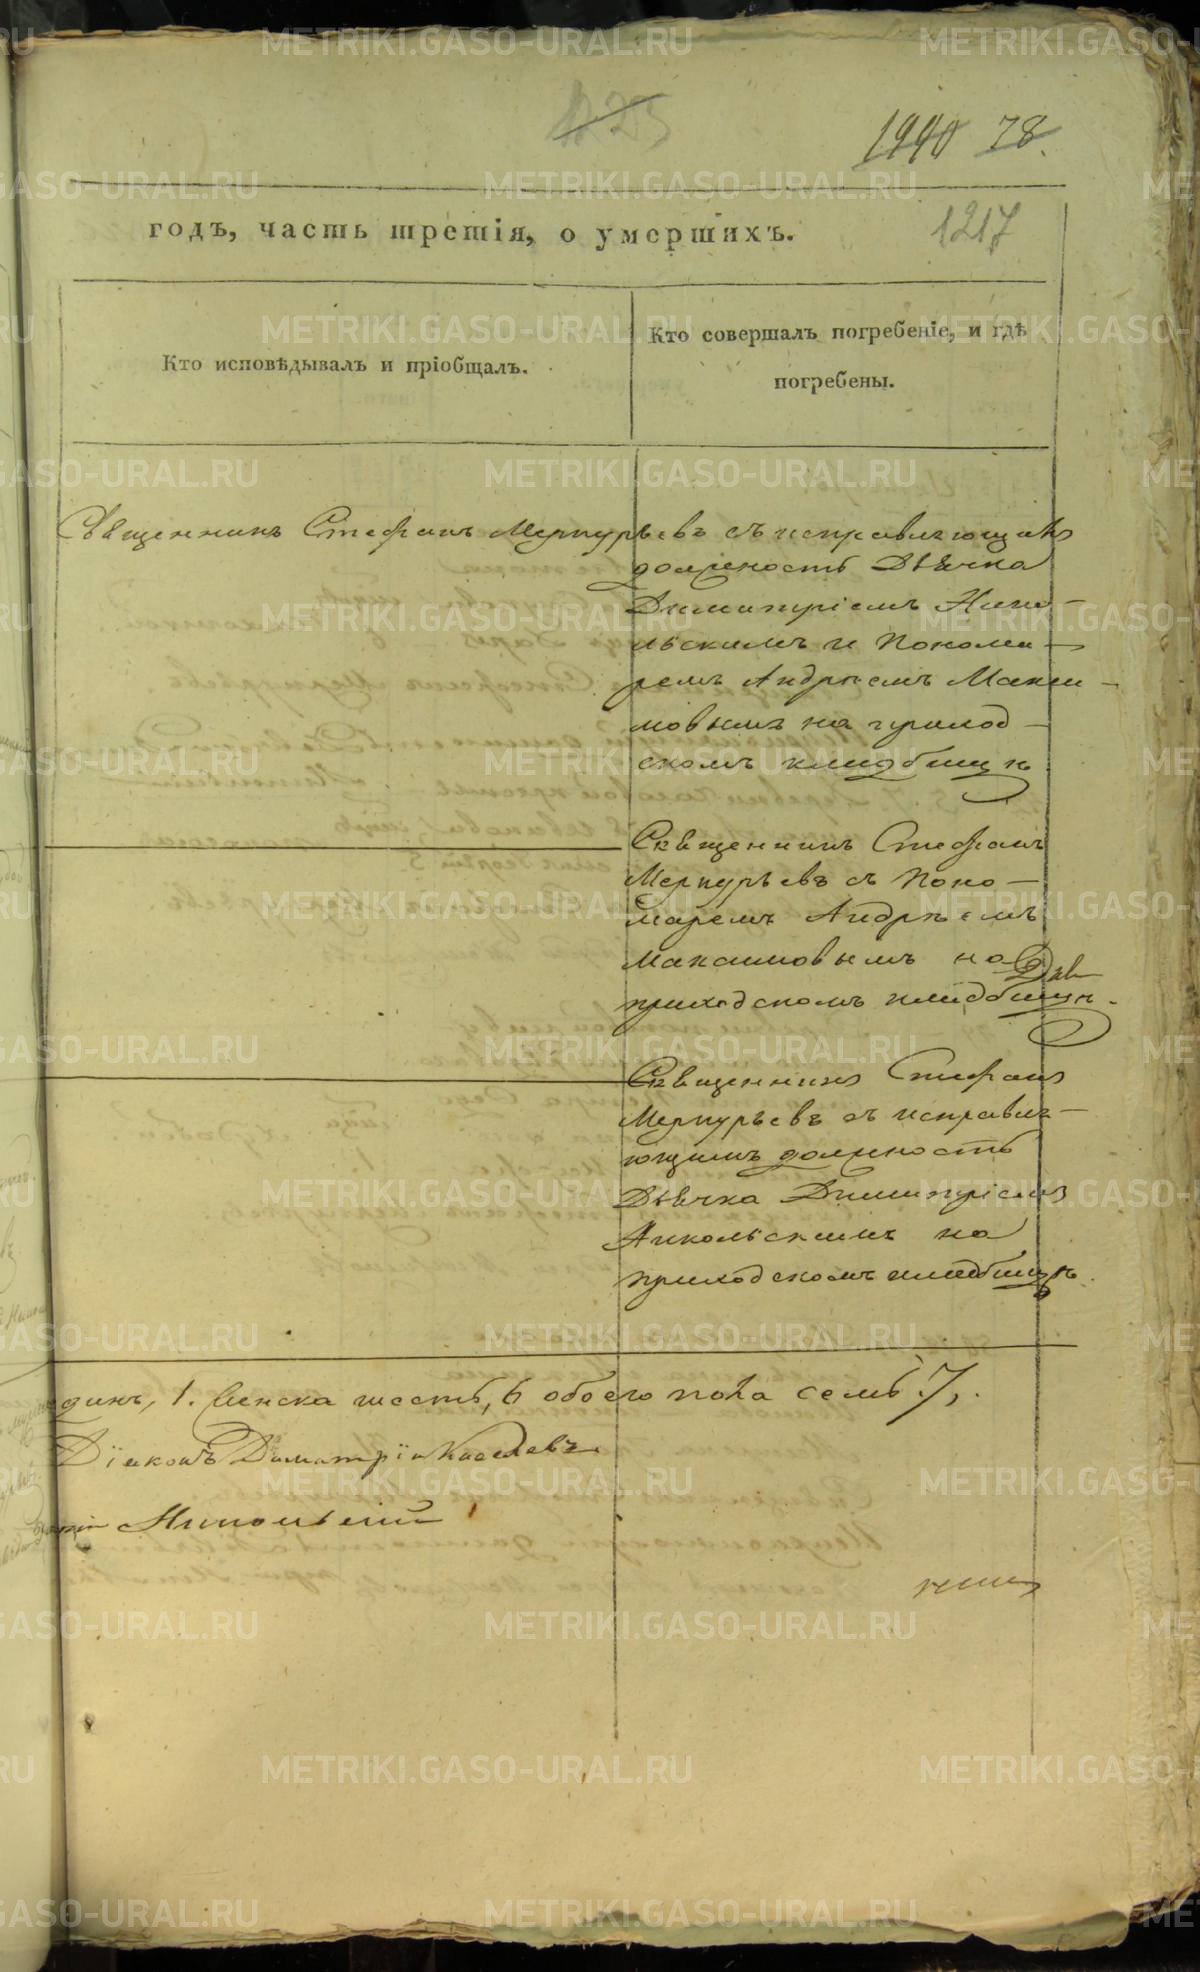 1223
1990 78.
1217
годъ, часть третія, о умершихъ.
Кто исповѣдывалъ и пріобщалъ.
Кто совершалъ погребеніе, и гдѣ
погребены.
Священникъ Стефанъ Меркурьевъ съ исправляющимъ
должность Дьячка
Димитріемъ Нико-
льскимъ и Понома-
ремъ Андрѣемъ Макси-
мовымъ на приход-
скомъ кладбищѣ
Священникъ Стефанъ
Меркурьевъ съ Поно-
маремъ Андрѣемъ
Максимовымъ на
приходскомъ кладбищѣ.
Священникъ Стефанъ
Меркурьевъ съ исправля-
ющимъ должность
Дьячка Димитріемъ
Никольскимъ на
приходскомъ кладбищѣ.
динъ, 1. Женска шесть, 6 обоего пола семь 7,.
Діаконъ Димитрій
Никольскій
METRIKI.GASO-URAL.RU